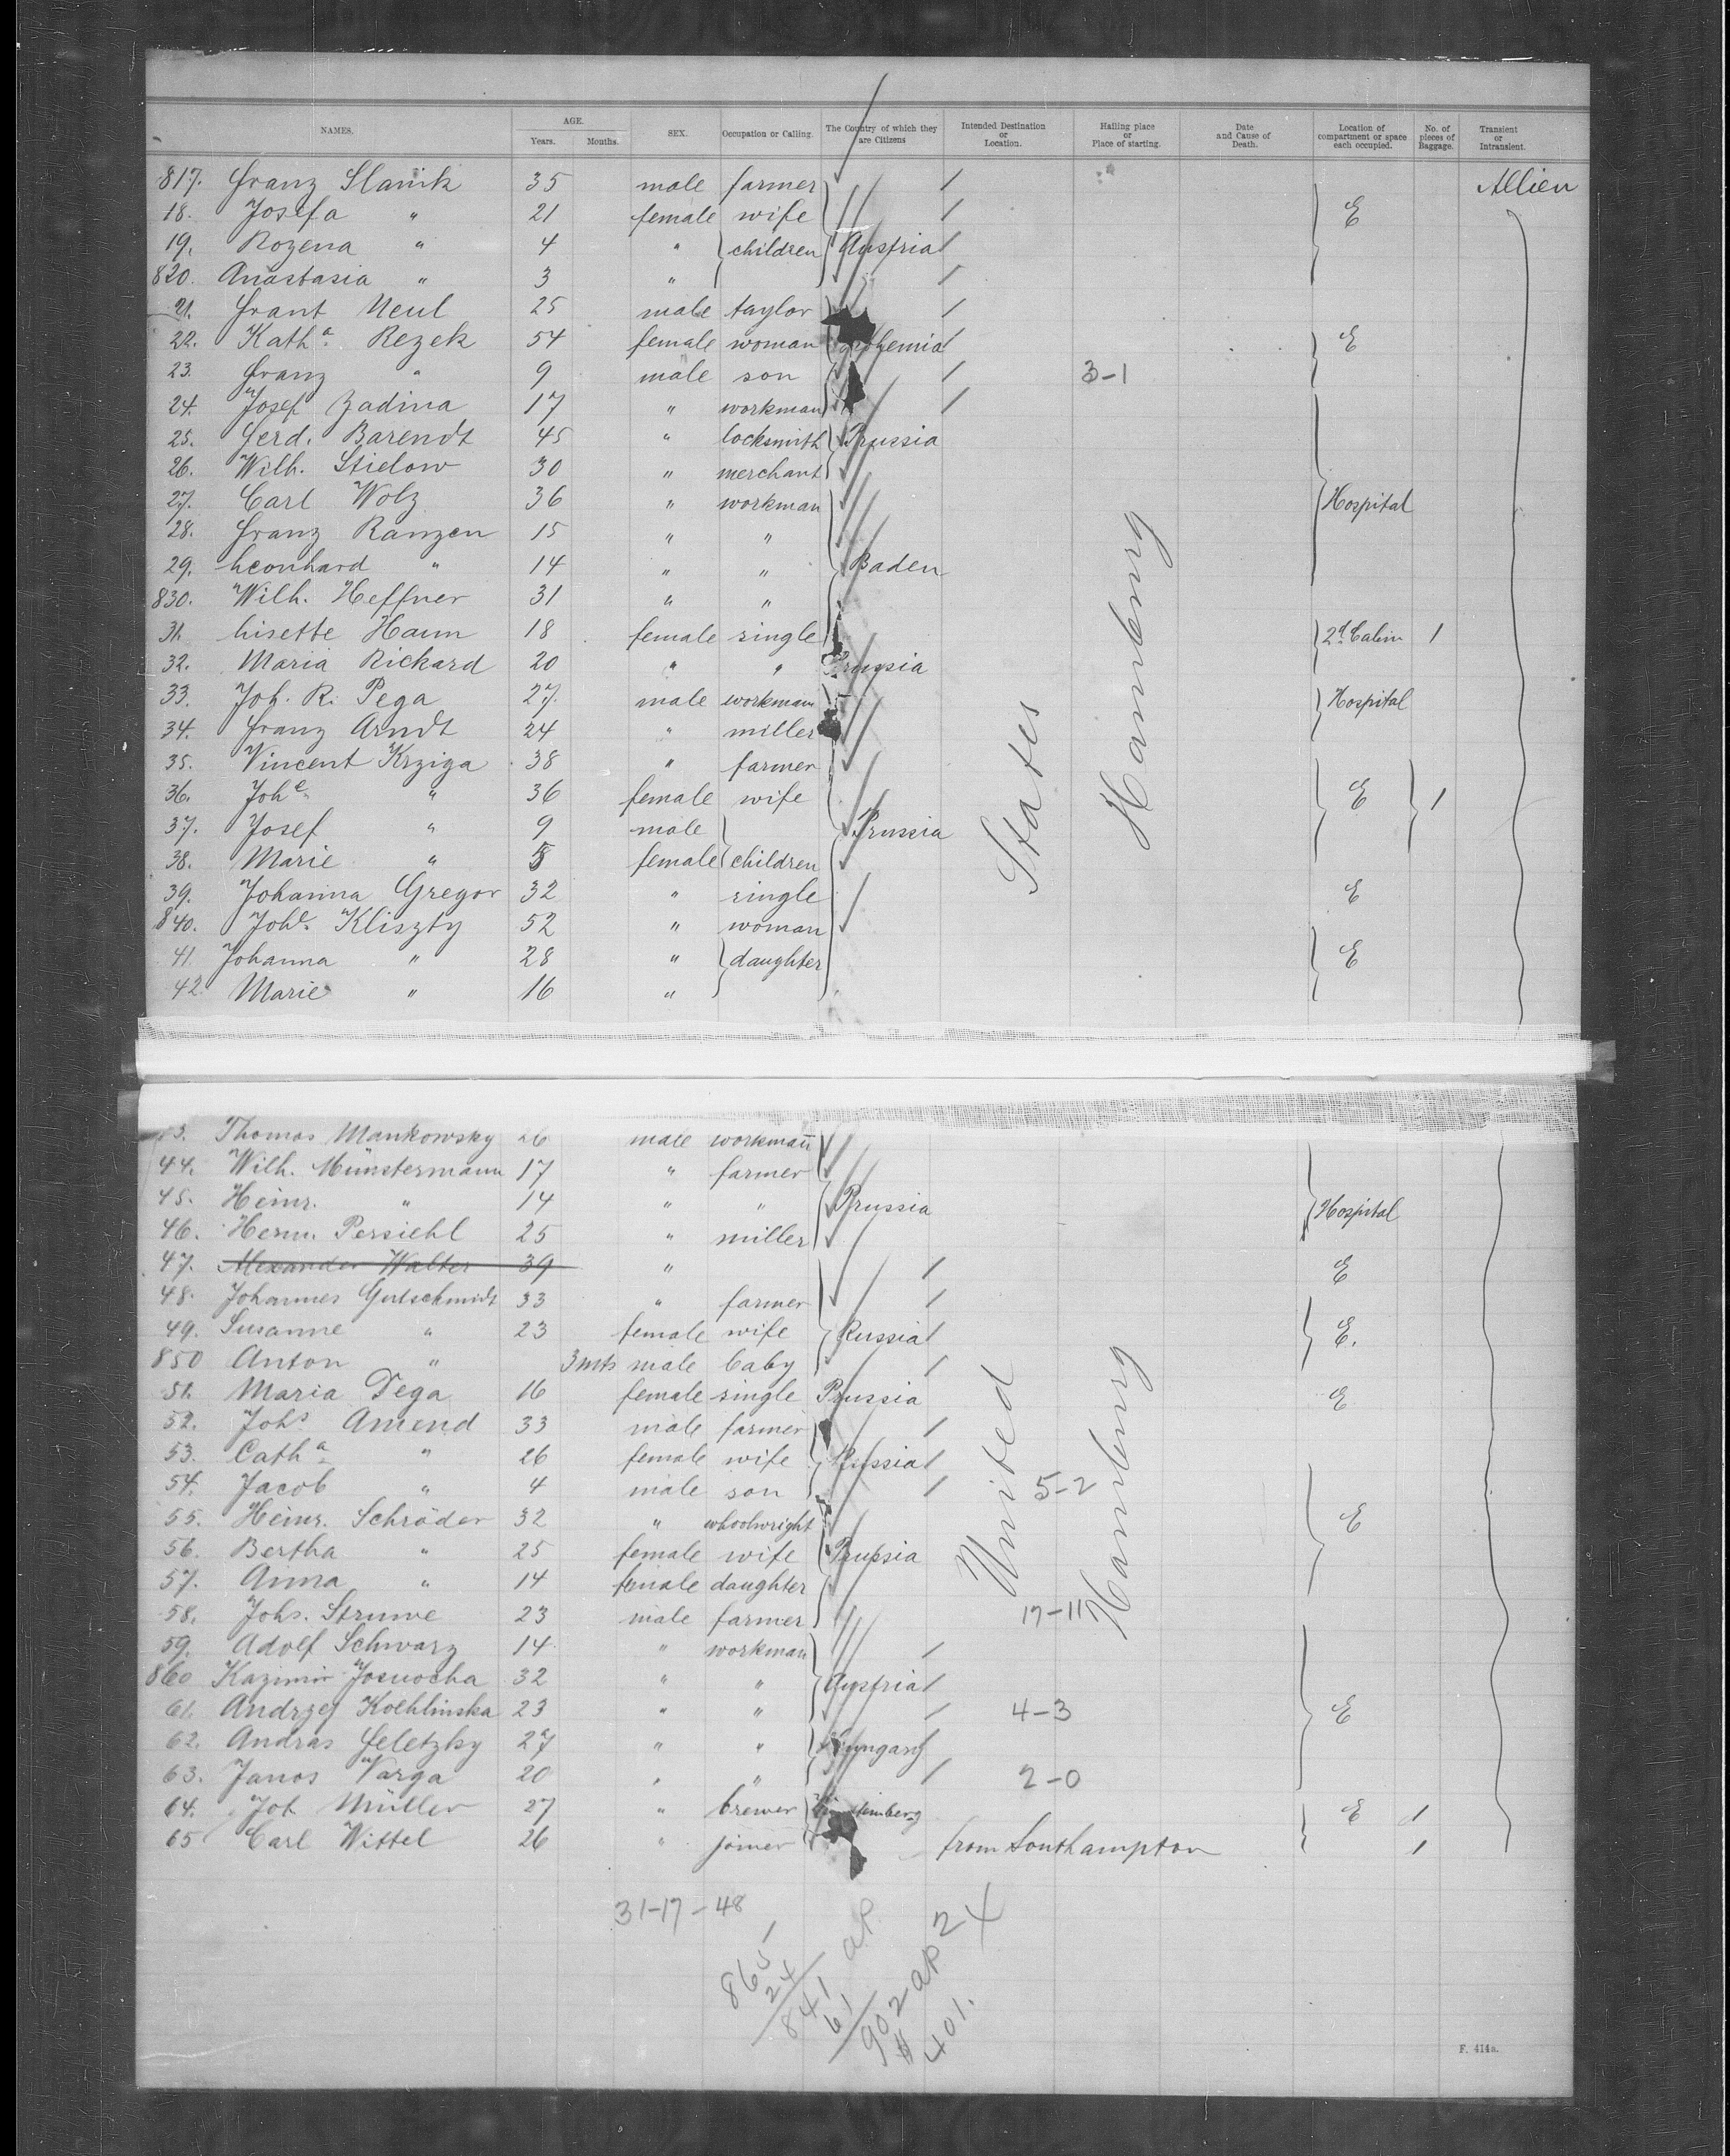 NAMES. AGE. Years. Months. SEX. Occupation or Calling. The Country of which they are Citizens Intended Destination or Location. Hailing place or Place of starting. Date and Cause of Death. Location of compartment or space each occupied. No. of pieces of Baggage. Transient or Intransient.
817. Franz Slanik 35 male farmer Allien
18. Josefa " 21 female wife E
19. Rozena " 4 " children Austria
820. Anastasia " 3 "
21. Frant Neul 25 male taylor
22. Kath.a Rezek 54 female woman Bohemia E
23. Franz " 9 male son 3-1
24. Josef Zadina 17 " workman
25. Ferd. Barendt 45 " locksmith Prussia
26. Wilh. Stielow 30 " merchant
27. Carl Wolz 36 " workman Hospital
28. Franz Ranzen 15 " "
29. Leonhard " 14 " " Baden
830. Wilh. Heffner 31 " "
31. Lisette Haum 18 female single 2d. Cabin 1
32. Maria Rickard 20 " " Prussia
33. Joh. R. Pega 27. male workman Hospital
34. Franz Arndt 24 " miller
35. Vincent Krziga 38 " farmer
36. Johe. " 36 female wife E 1
37. Josef " 9 male Prussia
38. Marie " female children
39. Johanna Gregor 32 " single E
840. Johe. Kliszty 52 " woman
41. Johanna " 28 " daughter E
42. Marie " 16 "
States
Hamburg
3. Thomas Mankowsky 26 male workman
44. Wilh. Münstermann 17 " farmer
45. Heinr. " 14 " " Prussia Hospital
46. Herm. Persiehl 25 " miller
47. Alexander Walter 39 " E
48. Johannes Gutschmidt 33 " farmer
49. Susanne " 23 female wife Russia E.
850 Anton " 3 mts male baby
51. Maria Dega 16 female single Prussia E
52. Johs Amend 33 male farmer
53. Catha. " 26 female wife Russia
54. Jacob " 4 male son 5-2
55. Heinr. Schröder 32 " whoolwright E
56. Bertha " 25 female wife Prussia
57. Anna " 14 female daughter
58. Johs. Struwe 23 male farmer 17-11
59. Adolf Schwarz 14 " workman
860 Kazimir Josuocha 32 " " Austria
61. Andrzej Koehlinska 23 " " 4-3 E
62. Andras Feletzky 27 " " Hungary
63. Janos Varga 20 " " 2-0
64. Joh Müller 27 " brewer E 1
65 Carl Wittel 26 " joiner from Southampton 1
United
Hamburg
31-17-48
865
24
841 ap
61
902 ap 24
401.
F. 414a.